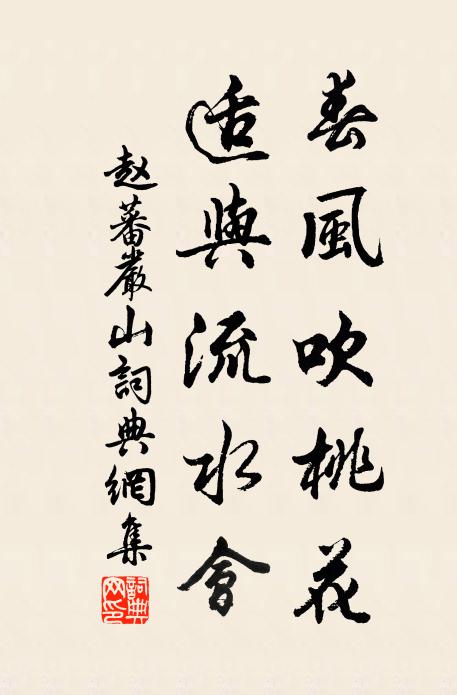 春風吹桃花
适與流水會
赵蕃嚴山詞典網集
詞典网印